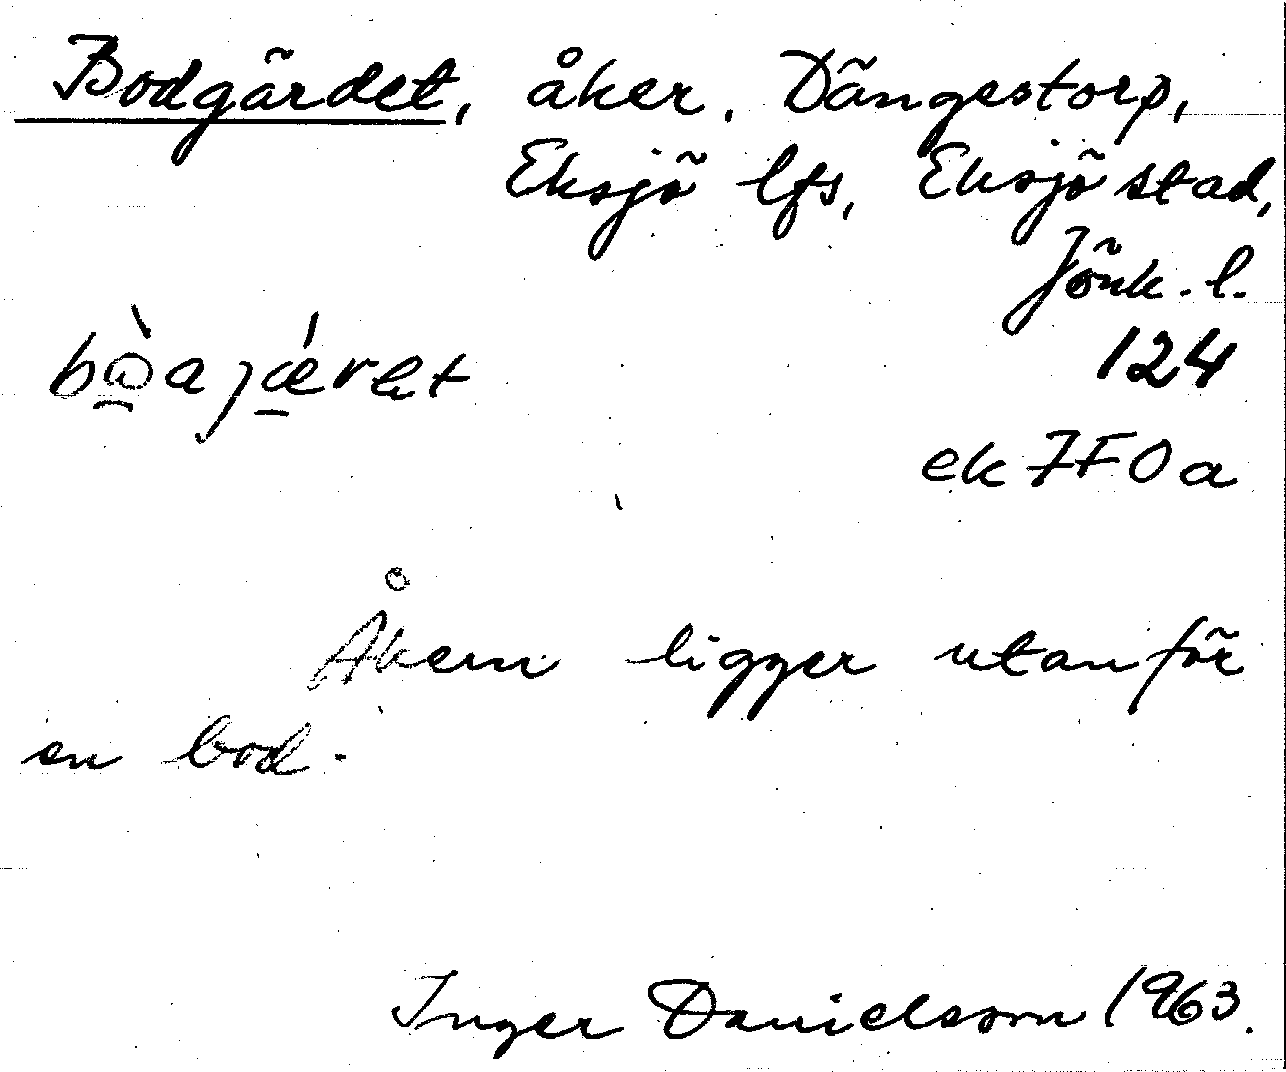 Bodgärdet, åker. Dängestorp,
Eksjö lfs, Eksjö stad,
Jönk. l.
124
ek 7F0a
Åkern ligger utanför
en bod.
Inger Danielsson 1963.